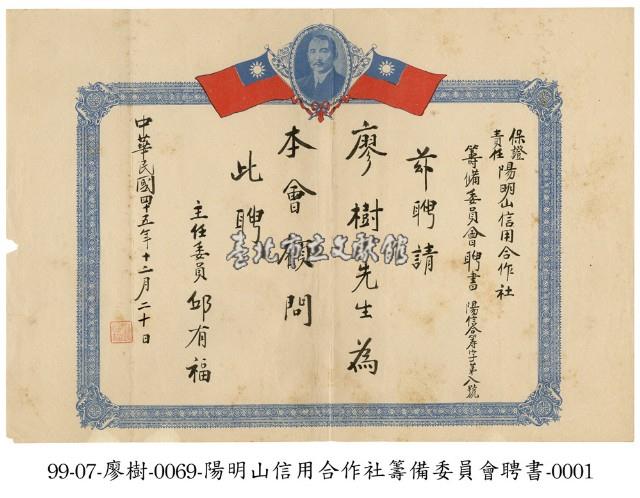 保證責任陽明山信用合作社
籌備委員會聘書 陽信合籌字第八號
茲聘請
廖樹先生為
本會顧問
此聘
主任委員 邱有福
中華民國四十五年十二月二十日
臺北市立文獻館
99-07-廖樹-0069-陽明山信用合作社籌備委員會聘書-0001